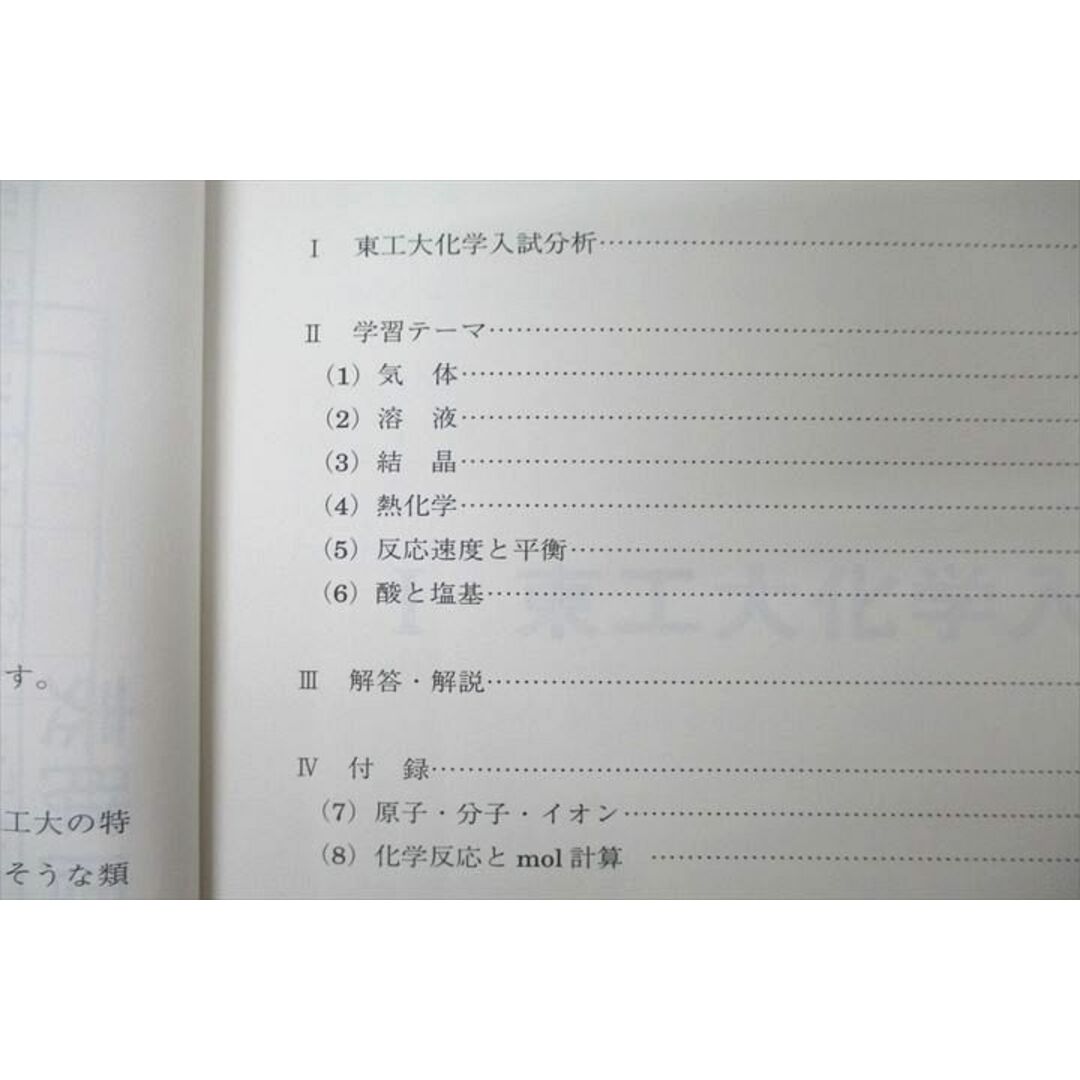 す。
工大の特
そうな類
Ⅰ 東工大化学入試分析…………………………
Ⅱ 学習テーマ…………………………
(1) 気　体…………………………
(2) 溶　液…………………………
(3) 結　晶…………………………
(4) 熱化学…………………………
(5) 反応速度と平衡…………………………
(6) 酸と塩基…………………………
Ⅲ 解答・解説…………………………
Ⅳ 付　録…………………………
(7) 原子・分子・イオン…………………………
(8) 化学反応と mol 計算 …………………………
Ⅰ 東工大化学入